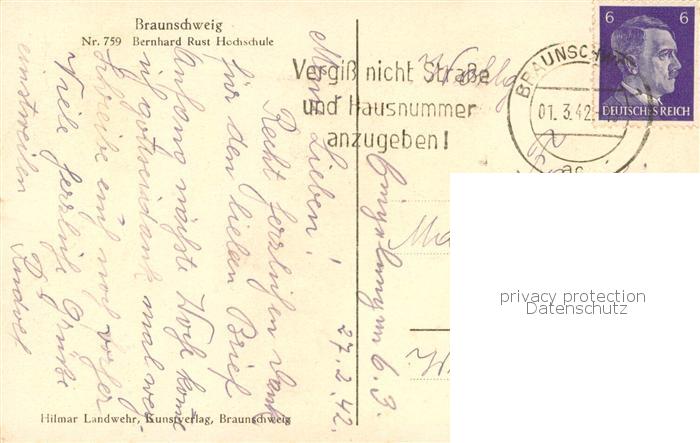 Braunschweig
Nr. 759 Bernhard Rust Hochschule
6 6
DEUTSCHES REICH
BRAUNSCHWEIG
01. 3. 42
Vergiß nicht Straße
und Hausnummer
anzugeben!
27. 2. 42.
Meine Lieben!
Recht herzlichen Dank
für den lieben Brief
Anfang nächste Woche komme
ich gottseidank mal weg.
Schreibe euch noch vorher
Viele herzliche Grüße
einstweilen
am 6. 3.
privacy protection
Datenschutz
Hilmar Landwehr, Kunstverlag, Braunschweig